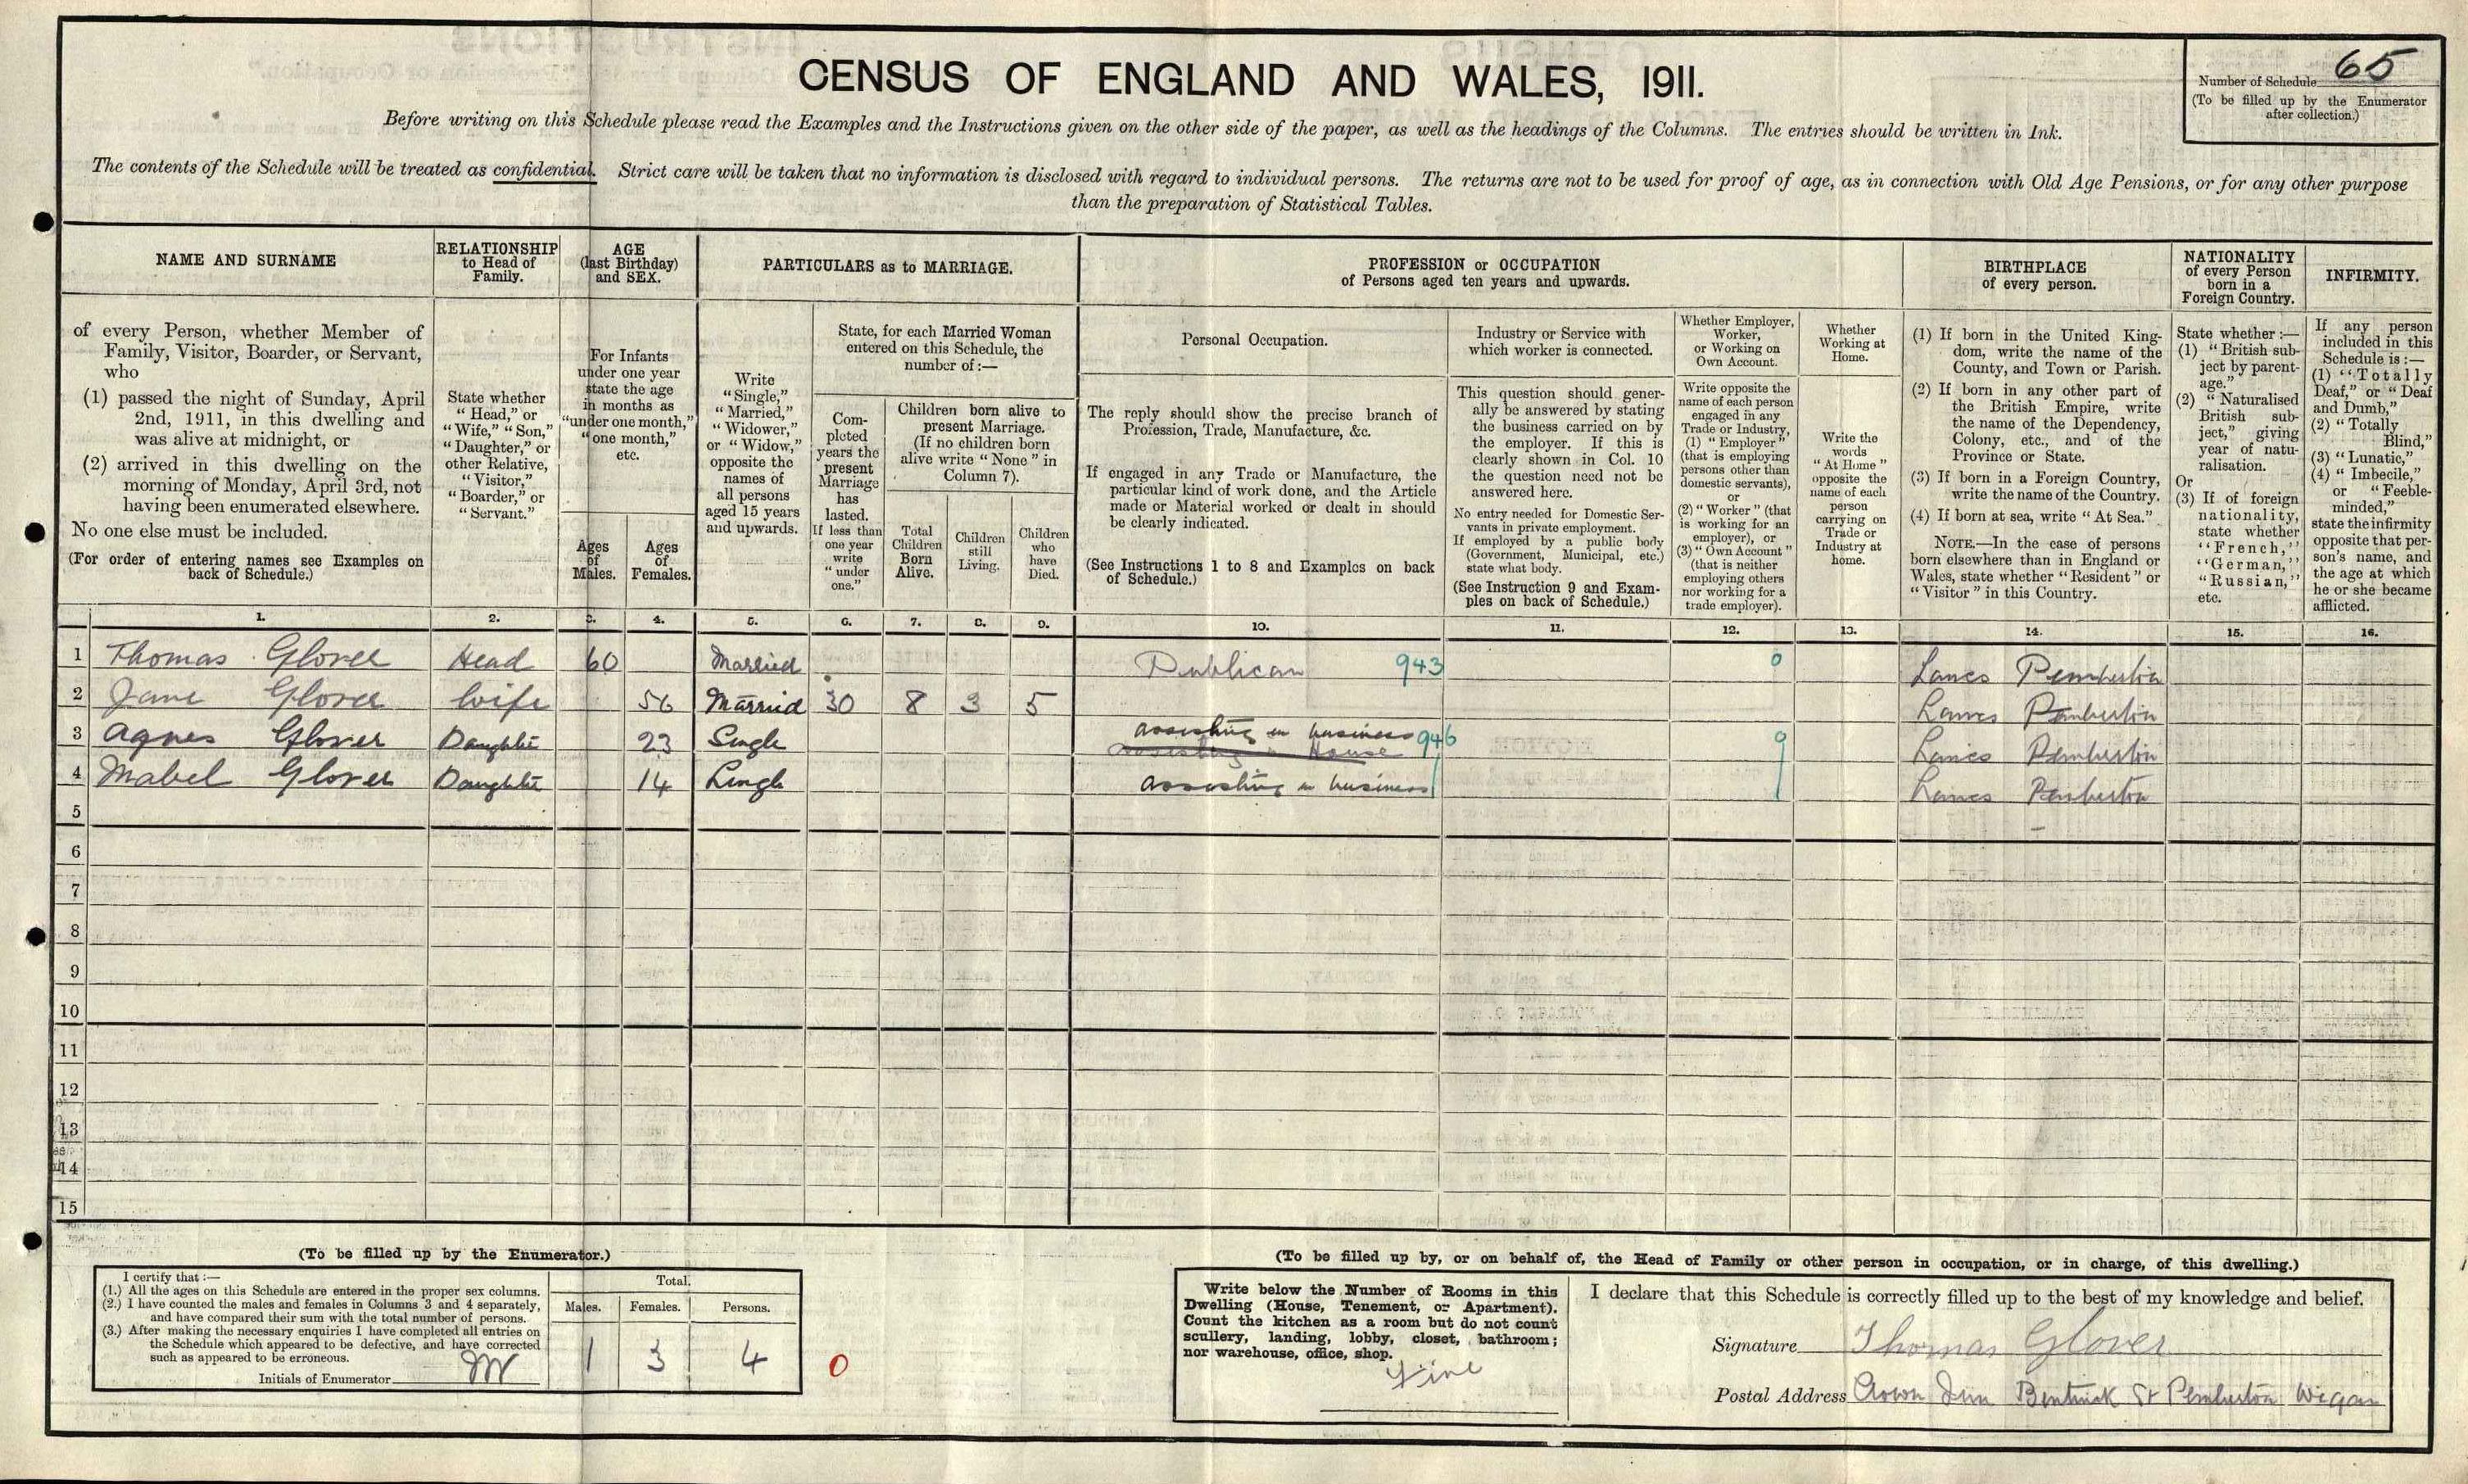 CENSUS OF ENGLAND AND WALES, 1911.
Number of Schedule 65
(To be filled up by the Enumerator
after collection.)
Before writing on this Schedule please read the Examples and the Instructions given on the other side of the paper, as well as the headings of the Columns. The entries should be written in Ink.
The contents of the Schedule will be treated as confidential. Strict care will be taken that no information is disclosed with regard to individual persons. The returns are not to be used for proof of age, as in connection with Old Age Pensions, or for any other purpose
than the preparation of Statistical Tables.
NAME AND SURNAME
of every Person, whether Member of
Family, Visitor, Boarder, or Servant,
who
(1) passed the night of Sunday, April
2nd, 1911, in this dwelling and
was alive at midnight, or
(2) arrived in this dwelling on the
morning of Monday, April 3rd, not
having been enumerated elsewhere.
No one else must be included.
(For order of entering names see Examples on
back of Schedule.)
RELATIONSHIP
to Head of
Family.
State whether
"Head," or
"Wife," "Son,"
"Daughter," or
other Relative,
"Visitor,"
"Boarder," or
"Servant."
AGE
(last Birthday)
and SEX.
For Infants
under one year
state the age
in months as
"under one month,"
"one month,"
etc.
Ages
of
Males.
Ages
of
Females.
PARTICULARS as to MARRIAGE.
Write
"Single,"
"Married,"
"Widower,"
or "Widow,"
opposite the
names of
all persons
aged 15 years
and upwards.
State, for each Married Woman
entered on this Schedule, the
number of:—
Com-
pleted
years the
present
Marriage
has
lasted.
If less than
one year
write
"under
one."
Children born alive to
present Marriage.
(If no children born
alive write "None" in
Column 7).
Total
Children
Born
Alive.
Children
still
Living.
Children
who
have
Died.
PROFESSION or OCCUPATION
of Persons aged ten years and upwards.
Personal Occupation.
The reply should show the precise branch of
Profession, Trade, Manufacture, &c.
If engaged in any Trade or Manufacture, the
particular kind of work done, and the Article
made or Material worked or dealt in should
be clearly indicated.
(See Instructions 1 to 8 and Examples on back
of Schedule.)
Industry or Service with
which worker is connected.
This question should gener-
ally be answered by stating
the business carried on by
the employer. If this is
clearly shown in Col. 10
the question need not be
answered here.
No entry needed for Domestic Ser-
vants in private employment.
If employed by a public body
(Government, Municipal, etc.)
state what body.
(See Instruction 9 and Exam-
ples on back of Schedule.)
Whether Employer,
Worker,
or Working on
Own Account.
Write opposite the
name of each person
engaged in any
Trade or Industry,
(1) "Employer"
(that is employing
persons other than
domestic servants),
or
(2) "Worker" (that
is working for an
employer), or
(3) "Own Account"
(that is neither
employing others
nor working for a
trade employer).
Whether
Working at
Home.
Write the
words
"At Home"
opposite the
name of each
person
carrying on
Trade or
Industry at
home.
BIRTHPLACE
of every person.
(1) If born in the United King-
dom, write the name of the
County, and Town or Parish.
(2) If born in any other part of
the British Empire, write
the name of the Dependency,
Colony, etc., and of the
Province or State.
(3) If born in a Foreign Country,
write the name of the Country.
(4) If born at sea, write "At Sea."
NOTE.—In the case of persons
born elsewhere than in England or
Wales, state whether "Resident" or
"Visitor" in this Country.
NATIONALITY
of every Person
born in a
Foreign Country.
State whether:—
(1) "British sub-
ject by parent-
age."
(2) "Naturalised
British sub-
ject," giving
year of natu-
ralisation.
Or
(3) If of foreign
nationality,
state whether
"French,"
"German,"
"Russian,"
etc.
INFIRMITY.
If any person
included in this
Schedule is:—
(1) "Totally
Deaf," or "Deaf
and Dumb,"
(2) "Totally
Blind,"
(3) "Lunatic,"
(4) "Imbecile,"
or "Feeble-
minded,"
state the infirmity
opposite that per-
son's name, and
the age at which
he or she became
afflicted.
1. 2. 3. 4. 5. 6. 7. 8. 9. 10. 11. 12. 13. 14. 15. 16.
1 Thomas Glover Head 60 Married Publican 943 0 Lancs Pemberton
2 Jane Glover Wife 56 Married 30 8 3 5 Lancs Pemberton
3 Agnes Glover Daughter 23 Single assisting in business 946 9 Lancs Pemberton
assisting in House
4 Mabel Glover Daughter 14 Single assisting in business Lancs Pemberton
5
6
7
8
9
10
11
12
13
14
15
(To be filled up by the Enumerator.)
I certify that:—
(1.) All the ages on this Schedule are entered in the proper sex columns.
(2.) I have counted the males and females in Columns 3 and 4 separately,
and have compared their sum with the total number of persons.
(3.) After making the necessary enquiries I have completed all entries on
the Schedule which appeared to be defective, and have corrected
such as appeared to be erroneous.
Initials of Enumerator
Total.
Males. Females. Persons.
1 3 4
0
(To be filled up by, or on behalf of, the Head of Family or other person in occupation, or in charge, of this dwelling.)
Write below the Number of Rooms in this
Dwelling (House, Tenement, or Apartment).
Count the kitchen as a room but do not count
scullery, landing, lobby, closet, bathroom;
nor warehouse, office, shop.
Five
I declare that this Schedule is correctly filled up to the best of my knowledge and belief.
Signature Thomas Glover
Postal Address Crown Inn Bentinck St Pemberton Wigan